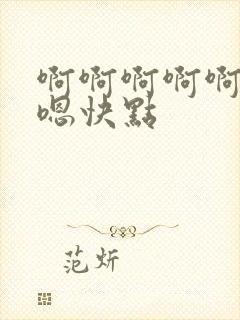 啊啊啊啊啊
嗯快點
范炘